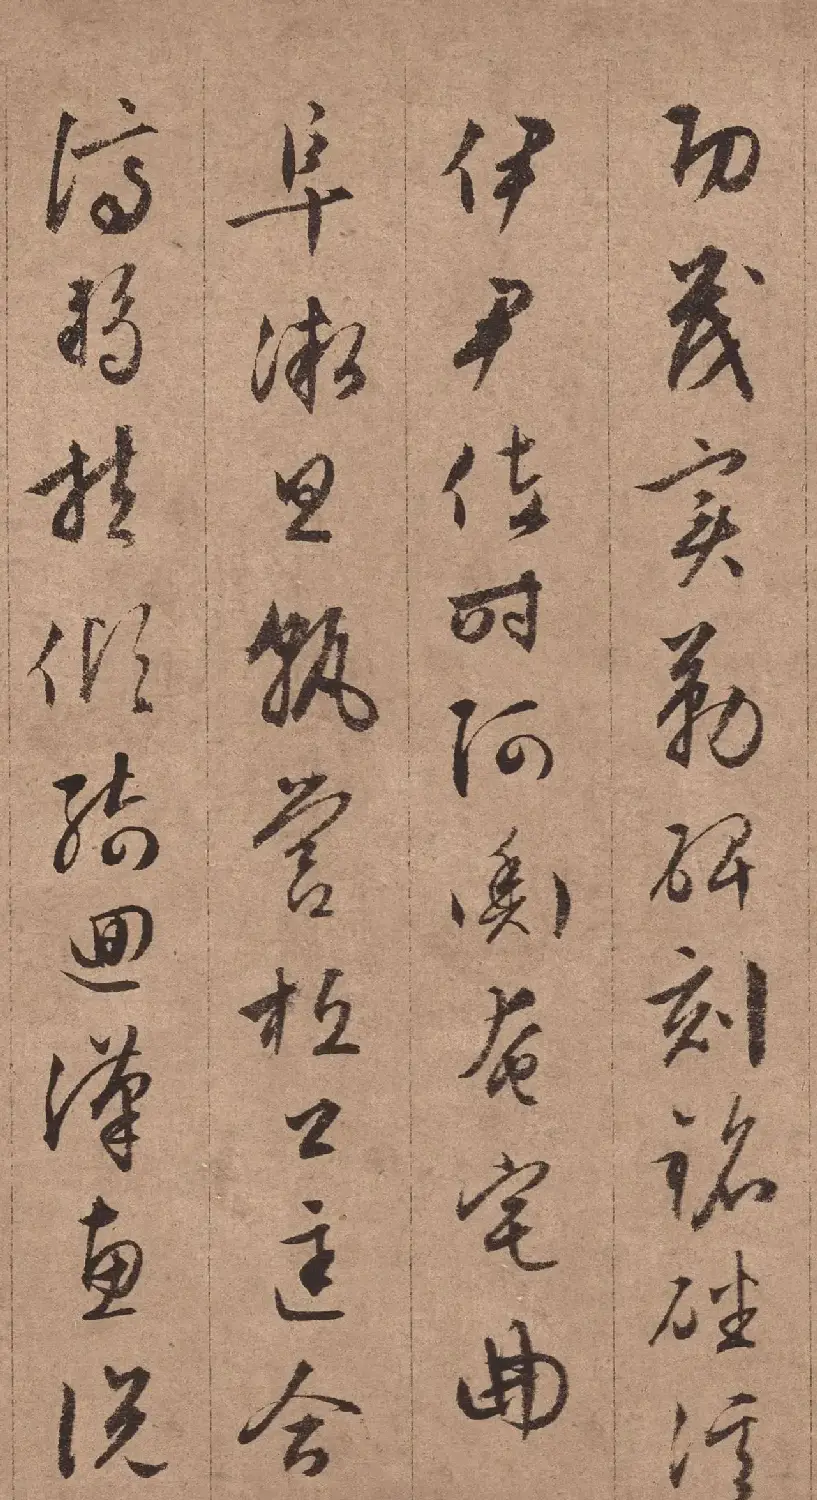 功茂實勒碑刻銘磻溪
伊尹佐時阿衡奄宅曲
阜微旦孰營桓公匡合
濟弱扶傾綺迴漢惠說